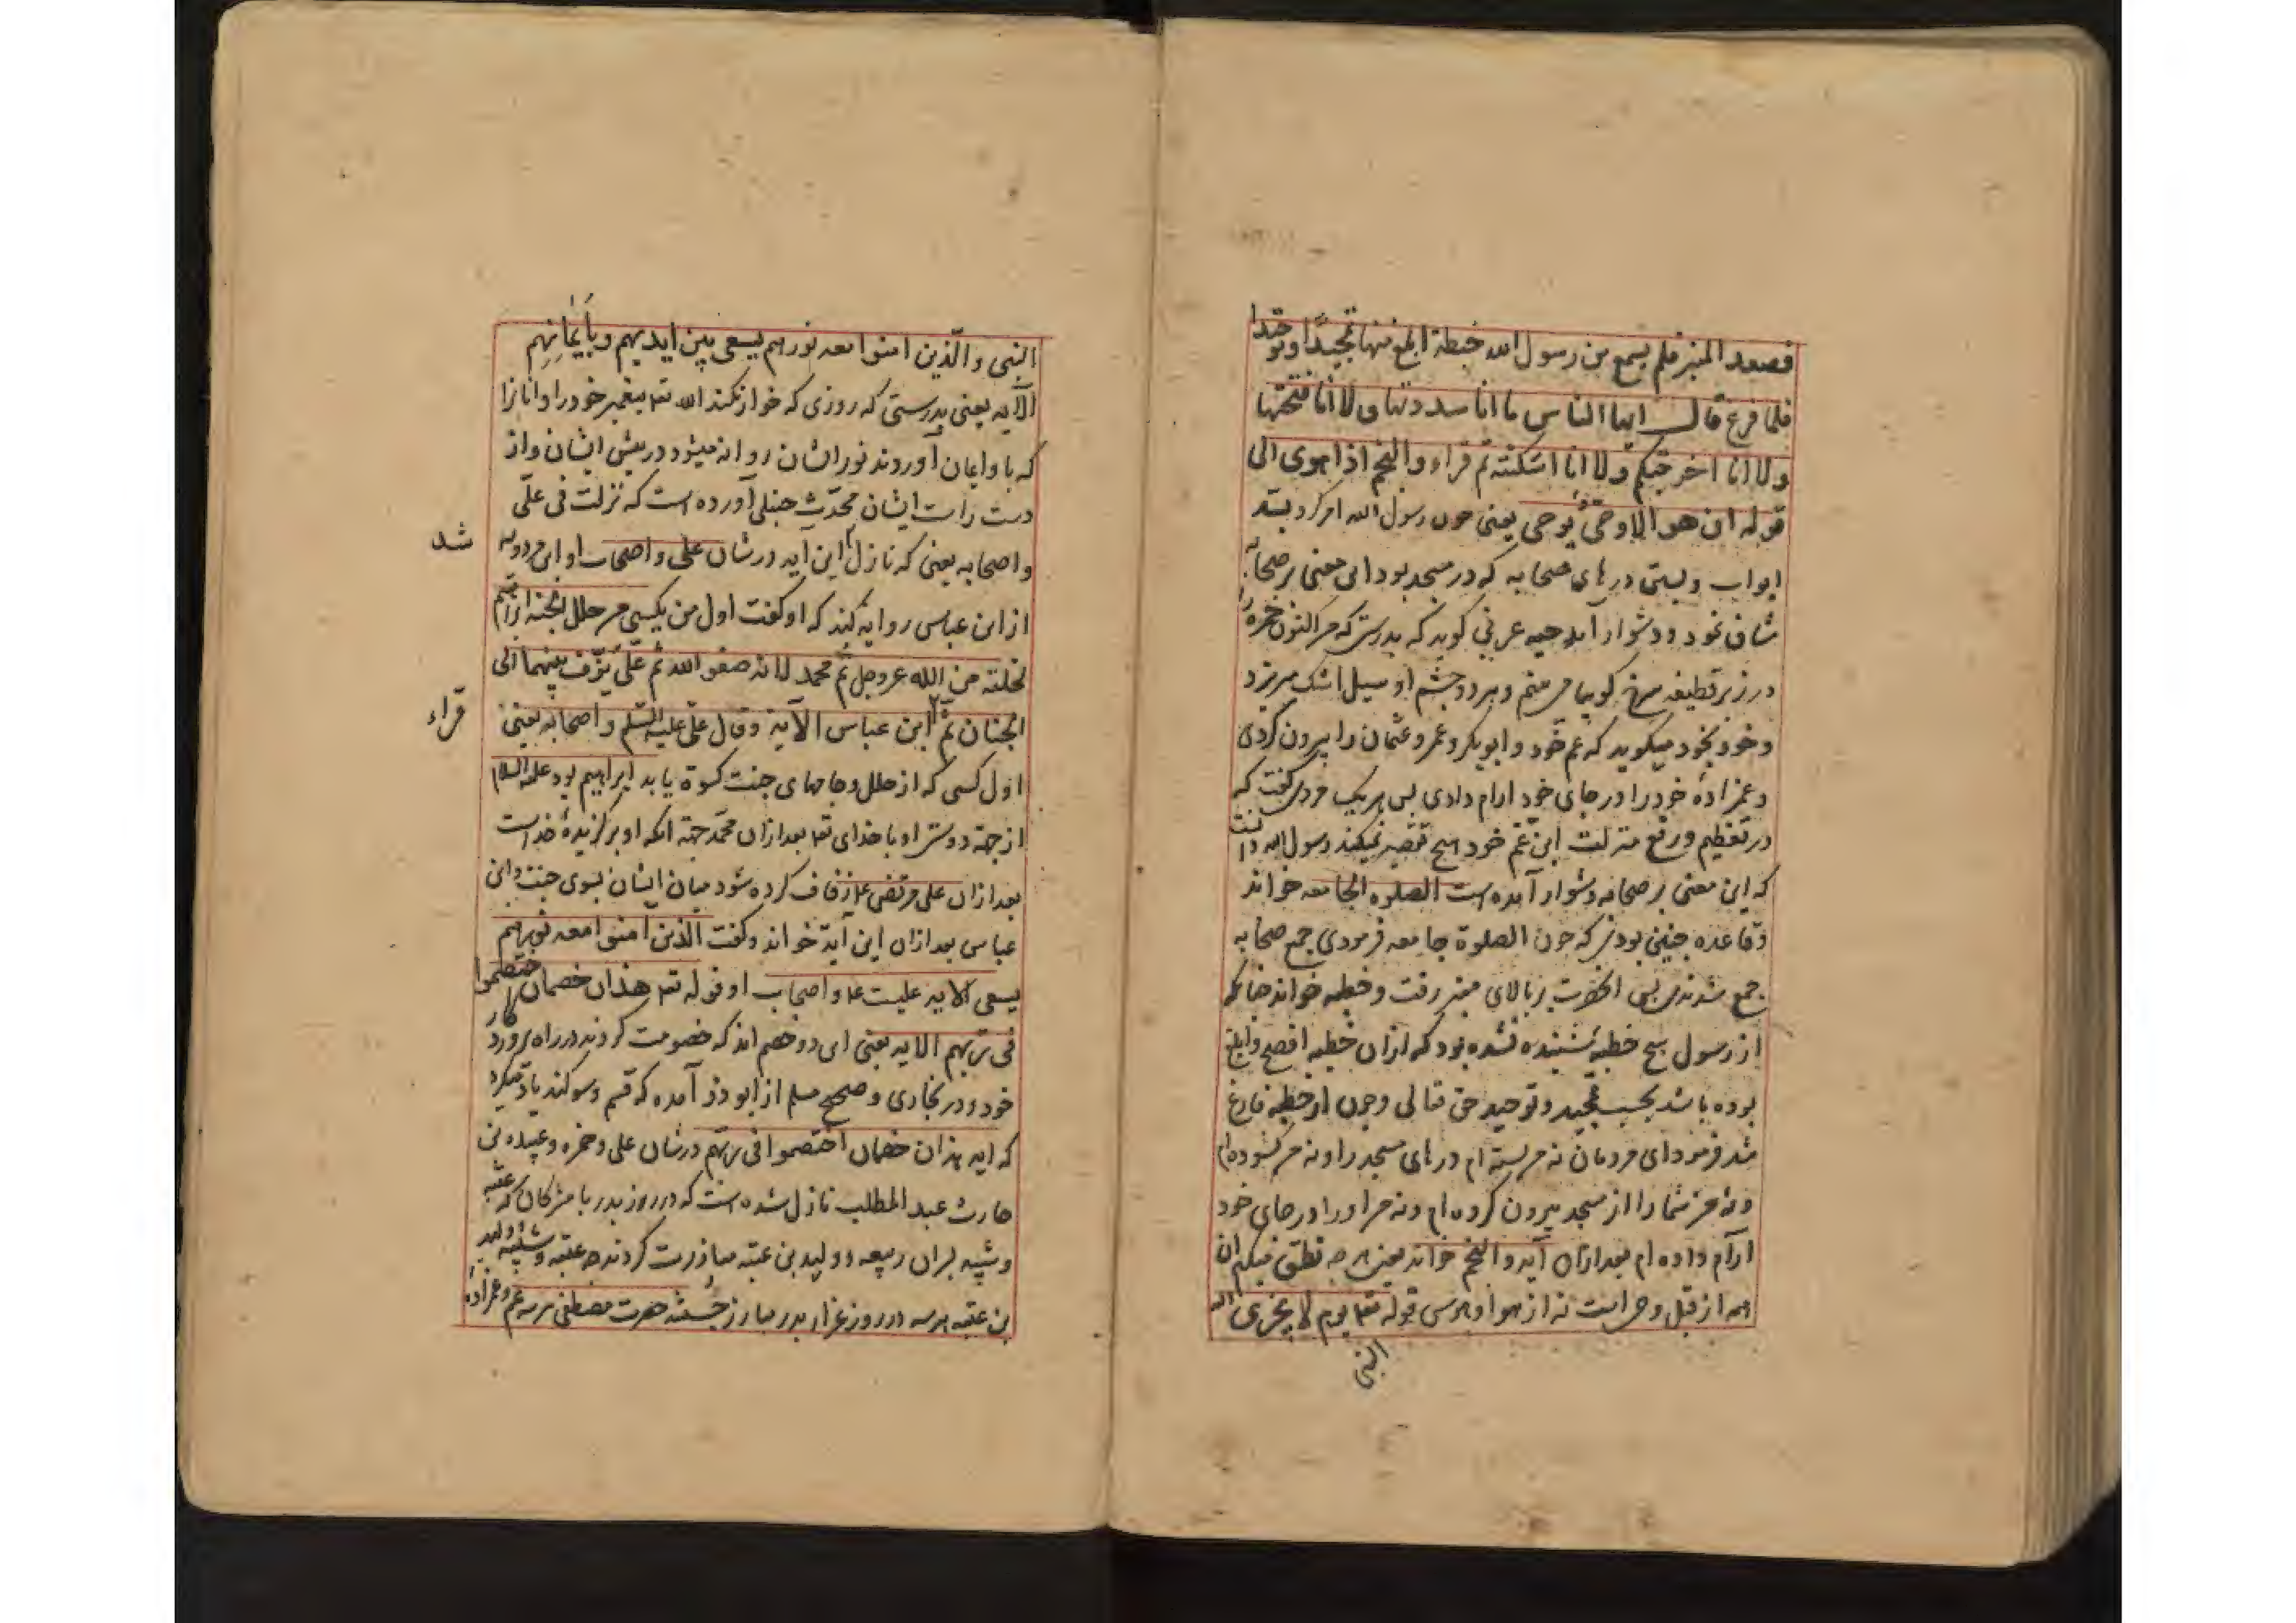 فصعد المنبر فلم يسمع من رسول الله خطبة ابلغ منها تمجيدًا و توحيدا
فلما فرغ قال ايها الناس ما انا سددتها و لا انا فتحتها
و لا انا اخرجتكم و لا انا اسكنته ثم قراء و النجم اذا هوى الى
قوله ان هو الا وحىٌ يوحى يعنى چون رسول الله امر كرد بسدّ
ابواب و بستن درهاى صحابه كه در مسجد بود اين معنى بر صحابه
شاق نمود و دشوار آمد حبه عرنى كويد كه بدرستى كه من اكنون حمزه را
در زير قطيفه سرخ كوييا مى بينم و هر دو چشم او سيل اشك ميريزد
و خود بخود ميكويد كه عم خود و ابو بكر و عمر و عثمان را بيرون كردى
و عمزادهٔ خود را در جاى خود ارام دادى پس هر يك مردى كفت كه
در تعظيم و رفع منزلت ابن عم خود هيچ تقصير نميكند رسول الله دانست
كه اين معنى بر صحابه دشوار آمده است الصلوه الجامعه خواند
و قاعده چنين بودى كه چون الصلوة جامعه فرمودى جمع صحابه
جمع شدندى پس انحضرت بر بالاى منبر رفت و خطبه خواند چنانكه
از رسول هيچ خطبهٔ شنيده نشده بود كه از ان خطبه افصح و ابلغ
بوده باشد بحسب تمجيد و توحيد حق تعالى و چون از خطبه فارغ
شد فرمود اى مردمان نه من بسته ام درهاى مسجد را و نه من كشوده ام
و نه من شما را از مسجد بيرون كرده ام و نه من او را در جاى خود
ارام داده ام بعد ازان آيه و النجم خواند يعنى هر چه نطق ميكنم ان
همه از قبل وحى است نه از هوا و هوسى قوله تعا يوم لا يخزى الله
النبى
النبى و الّذين امنوا معه نورهم يسعى بين ايديهم و بأيمانِهم
الآيه يعنى بدرستى كه روزى كه خوار نكند الله تعا پيغمبر خود را و انانرا
كه با و ايمان آوردند نور اشان روانه ميشود در پيش ايشان و از
دست راست ايشان محدّث حنبلى آورده است كه نزلت فى علّى
و اصحابه يعنى كه نازل اين آيه در شان على و اصحاب او ابن مردويه
شد
از ابن عباس روايه كند كه او كفت اول من يكسى من حلل الجنه ابراهيم
لخلته من الله عز و جل ثم محمد لانه صفو الله ثم علّى يزّف بينهما الى
الجنان ثم ابن عباس الآية و قال علّى عليه السّلم و اصحابه يعنى
قراء
اول كسى كه از حلل و جامهاى جنت كسوة يابد ابراهيم بود عليه السلام
از جهة دوستى او با خداى تعا بعد ازان محمّد جهة انكه او بركزيدهٔ خداست
بعد ازان على مرتضى علا زفاف كرده شود ميان ايشان بسوى جنت و ابن
عباس بعد ازان اين آية خواند و كفت الّذين امنوا معه نورهم
يسعى الايه عليست علا و اصحاب او قوله تعا هذان خصمان اختصموا
فى ربهم الايه يعنى اى دو خصم اند كه خصومت كردند در راه پروردكار
خود و در بخارى و صحيح مسلم از ابو ذر آمده كه قسم و سوكند ياد ميكرد
كه ايه هذان خصمان اختصموا فى ربهم در شان على و حمزه و عبيده بن
حارث عبد المطلب نازل شده است كه در روز بدر با مشركان كه عتبه
و شيبه پسران ربيعه و وليد بن عتبه مبارزت كردند چه عتبه و شيبه و وليد
بن عتبه هر سه در روز غزاء بدر مبارز جُستند حضرت مصطفى هر سه عم و عمزاده